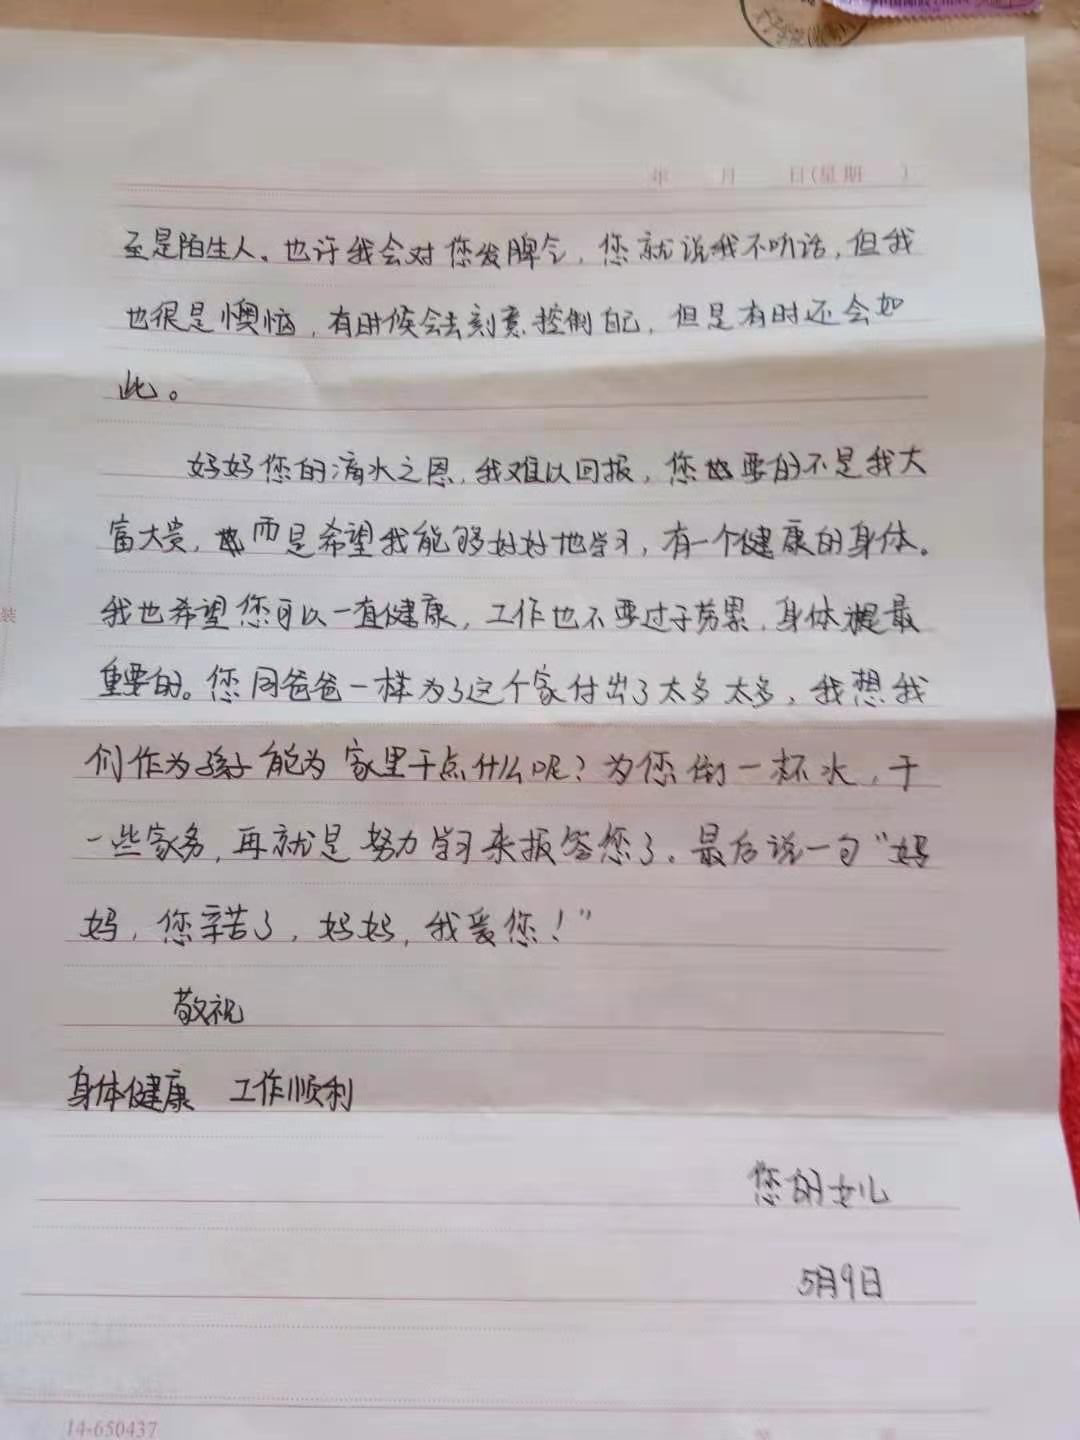 年 月 日(星期 )
至是陌生人。也许我会对您发脾气,您就说我不听话,但我
也很是懊恼,有时候会去刻意控制自己,但是有时还会如
此。
妈妈您的滴水之恩,我难以回报,您要的不是我大
富大贵,而是希望我能够好好地学习,有一个健康的身体。
我也希望您可以一直健康,工作也不要过于劳累,身体是最
重要的。您同爸爸一样为了这个家付出了太多太多,我想我
们作为孩子能为家里干点什么呢?为您倒一杯水,干
一些家务,再就是努力学习来报答您了。最后说一句“妈
妈,您辛苦了,妈妈,我爱您!”
敬祝
身体健康 工作顺利
您的女儿
5月9日
装
14-650437